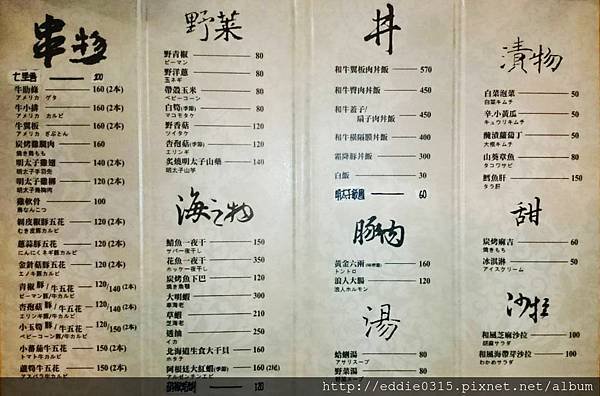 串物
七里香 100
牛肋條 160 (2本)
アメリカ ゲタ
牛小排 160 (2本)
アメリカ カルビ
牛翼板 160 (2本)
アメリカ ざぶとん
炭烤雞腿肉 160
焼き鳥もも
明太子雞翅 140 (2本)
明太子手羽先
明太子雞柳 120 (2本)
明太子鳥胸肉
雞軟骨 100
鳥なんこつ
剝皮椒豚五花 120 (2本)
むき皮豚カルビ
蔥蒜豚五花 120 (2本)
にんにくネギ豚カルビ
金針菇豚五花 120 (2本)
エノキ豚カルビ
青椒 豚/牛五花 120/140 (2本)
ピーマン豚/牛カルビ
杏孢菇 豚/牛五花 120/140 (2本)
エリンギ豚/牛カルビ
小玉筍 豚/牛五花 120/150 (2本)
ベビーコーン豚/牛カルビ
小蕃茄牛五花 150 (2本)
トマト牛カルビ
蘆筍牛五花 150 (2本)
アスパラ牛カルビ
野菜
野青椒 80
ピーマン
野洋蔥 80
玉ネギ
帶殼玉米 80
ベビーコーン
白筍(季節) 80
マコモタケ
野香菇 120
ツイタケ
杏孢菇(季節) 120
エリンギ
炙燒明太子山藥 140
明太子山芋
海之物
鯖魚一夜干 150
サバ一夜干し
花魚一夜干 350
ホッケ一夜干し
炭烤魚下巴 120
焼き魚顎
大明蝦 300
車海老
草蝦 210
芝海老
透抽 250
イカ
北海道生食大干貝 160
ホタテ
阿根廷大紅蝦(季節) 160 (2尾)
アルゼンチンエビ
120
丼
和牛翼板肉丼飯 570
和牛臀肉丼飯 450
和牛蓋子/
扇子肉丼飯 450
和牛橫隔膜丼飯 400
霜降豚丼飯 300
白飯 30
明太子飯糰 60
豚肉
黃金六兩 160
トントロ
浪人大腸 120
浪人ホルモン
湯
蛤蜊湯 80
アサリスープ
野菜湯 80
野菜スープ
漬物
白菜泡菜 50
白菜キムチ
辛.小黃瓜 50
キュウリキムチ
醃漬蘿蔔丁 50
大根キムチ
山葵章魚 80
タコワサビ
鱈魚肝 150
タラ肝
甜
炭烤麻吉 60
焼きもち
冰淇淋 50
アイスクリーム
沙拉
和風芝麻沙拉 100
胡麻サラダ
和風海帶芽沙拉 100
わかめサラダ
http://eddie0315.pixnet.net/album